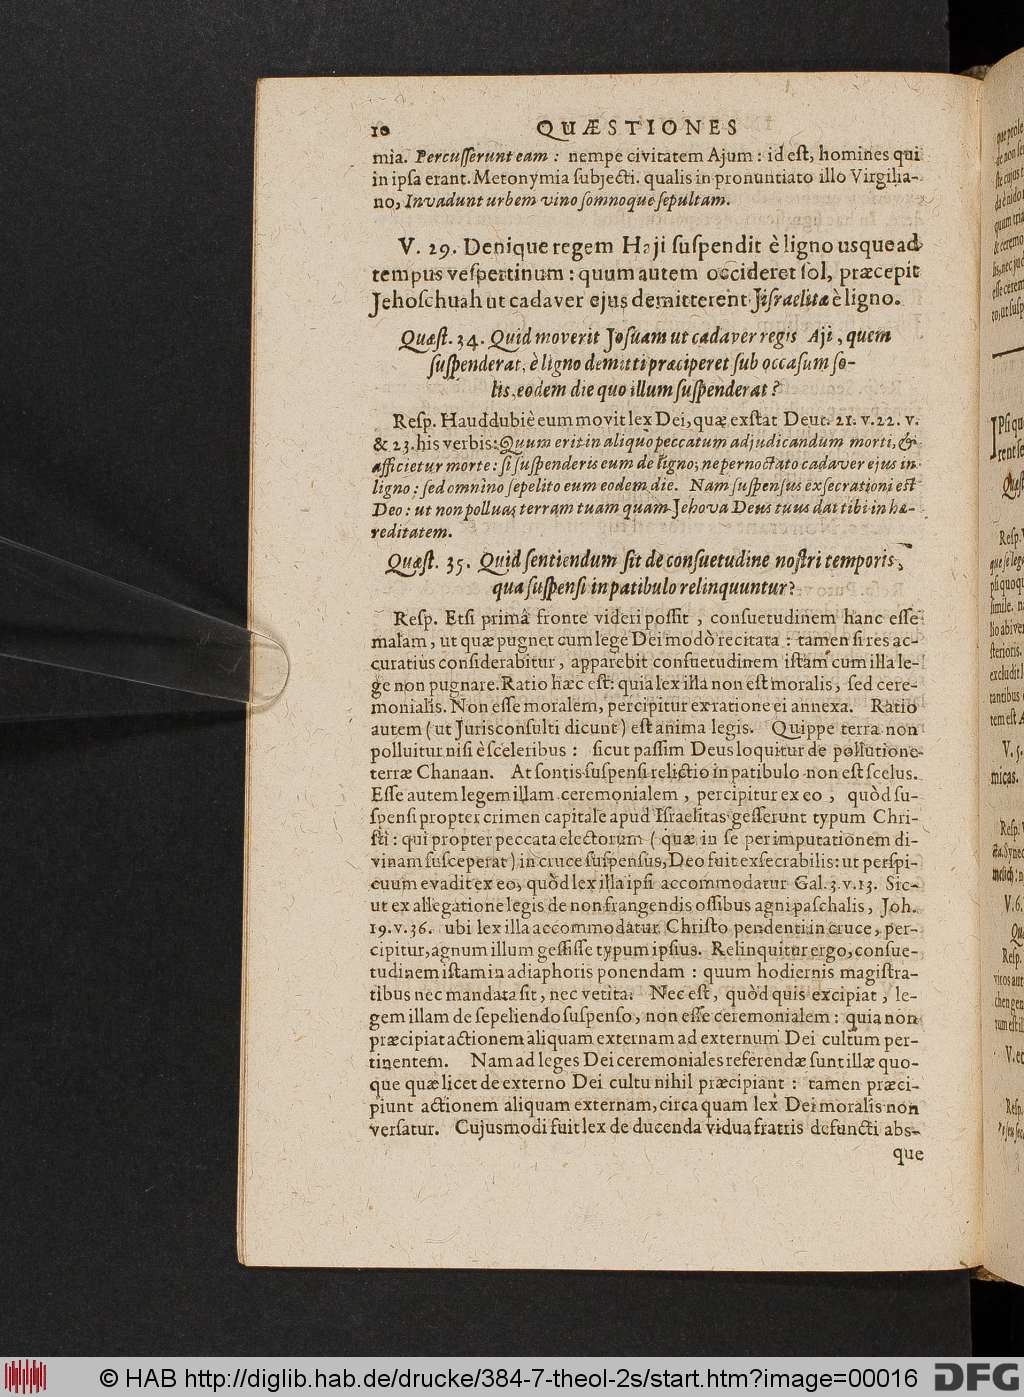 10 QUÆSTIONES
mia. Percusserunt eam : nempe civitatem Ajum : id est, homines qui
in ipsa erant. Metonymia subjecti. qualis in pronuntiato illo Virgilia-
no, Invadunt urbem vino somnoque sepultam.
V. 29. Denique regem Haji suspendit è ligno usque ad
tempus vespertinum : quum autem occideret sol, præcepit
Jehoschuah ut cadaver ejus demitterent Jisraelitæ è ligno.
Quæst. 34. Quid moverit Josuam ut cadaver regis Aji, quem
suspenderat, è ligno demitti præciperet sub occasum so-
lis, eodem die quo illum suspenderat?
Resp. Haud dubiè eum movit lex Dei, quæ exstat Deut. 21. v. 22. v.
& 23. his verbis: Quum erit in aliquo peccatum adjudicandum morti, &
afficietur morte : si suspenderis eum de ligno; ne pernoctato cadaver ejus in
ligno ; sed omnino sepelito eum eodem die. Nam suspensus exsecrationi est
Deo : ut non polluas terram tuam quam Jehova Deus tuus dat tibi in hæ-
reditatem.
Quæst. 35. Quid sentiendum sit de consuetudine nostri temporis,
qua suspensi in patibulo relinquuntur?
Resp. Etsi primâ fronte videri possit, consuetudinem hanc esse
malam, ut quæ pugnet cum lege Dei modò recitata : tamen si res ac-
curatiùs considerabitur, apparebit consuetudinem istam cum illa le-
ge non pugnare. Ratio hæc est: quia lex illa non est moralis, sed cere-
monialis. Non esse moralem, percipitur ex ratione ei annexa. Ratio
autem ( ut Jurisconsulti dicunt ) est anima legis. Quippe terra non
polluitur nisi è sceleribus : sicut passim Deus loquitur de pollutione
terræ Chanaan. At sontis suspensi relictio in patibulo non est scelus.
Esse autem legem illam ceremonialem, percipitur ex eo, quòd su-
spensi propter crimen capitale apud Israelitas gesserunt typum Chri-
sti : qui propter peccata electorum ( quæ in se per imputationem di-
vinam susceperat ) in cruce suspensus, Deo fuit exsecrabilis: ut perspi-
cuum evadit ex eo, quòd lex illa ipsi accommodatur Gal. 3. v. 13. Sic-
ut ex allegatione legis de non frangendis ossibus agni paschalis, Joh.
19. v. 36. ubi lex illa accommodatur Christo pendenti in cruce, per-
cipitur, agnum illum gessisse typum ipsius. Relinquitur ergo, consue-
tudinem istam in adiaphoris ponendam : quum hodiernis magistra-
tibus nec mandata sit, nec vetita. Nec est, quòd quis excipiat, le-
gem illam de sepeliendo suspenso, non esse ceremonialem : quia non
præcipiat actionem aliquam externam ad externum Dei cultum per-
tinentem. Nam ad leges Dei ceremoniales referendæ sunt illæ quo-
que quæ licet de externo Dei cultu nihil præcipiant : tamen præci-
piunt actionem aliquam externam, circa quam lex Dei moralis non
versatur. Cujusmodi fuit lex de ducenda vidua fratris defuncti abs-
que
© HAB http://diglib.hab.de/drucke/384-7-theol-2s/start.htm?image=00016
DFG